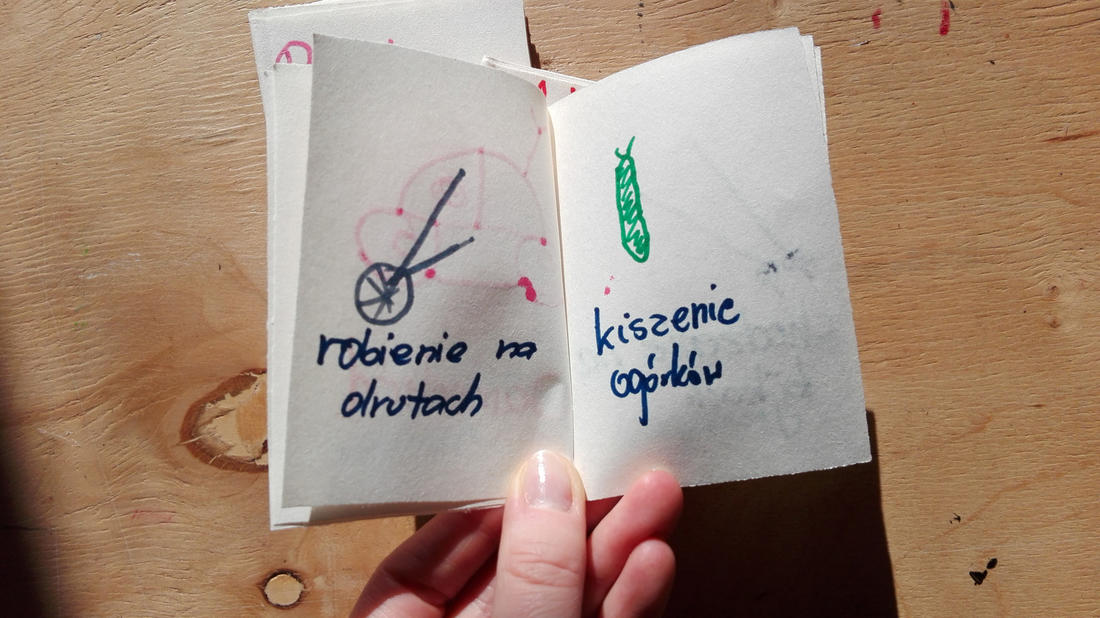 robienie na
drutach
kiszenie
ogórków